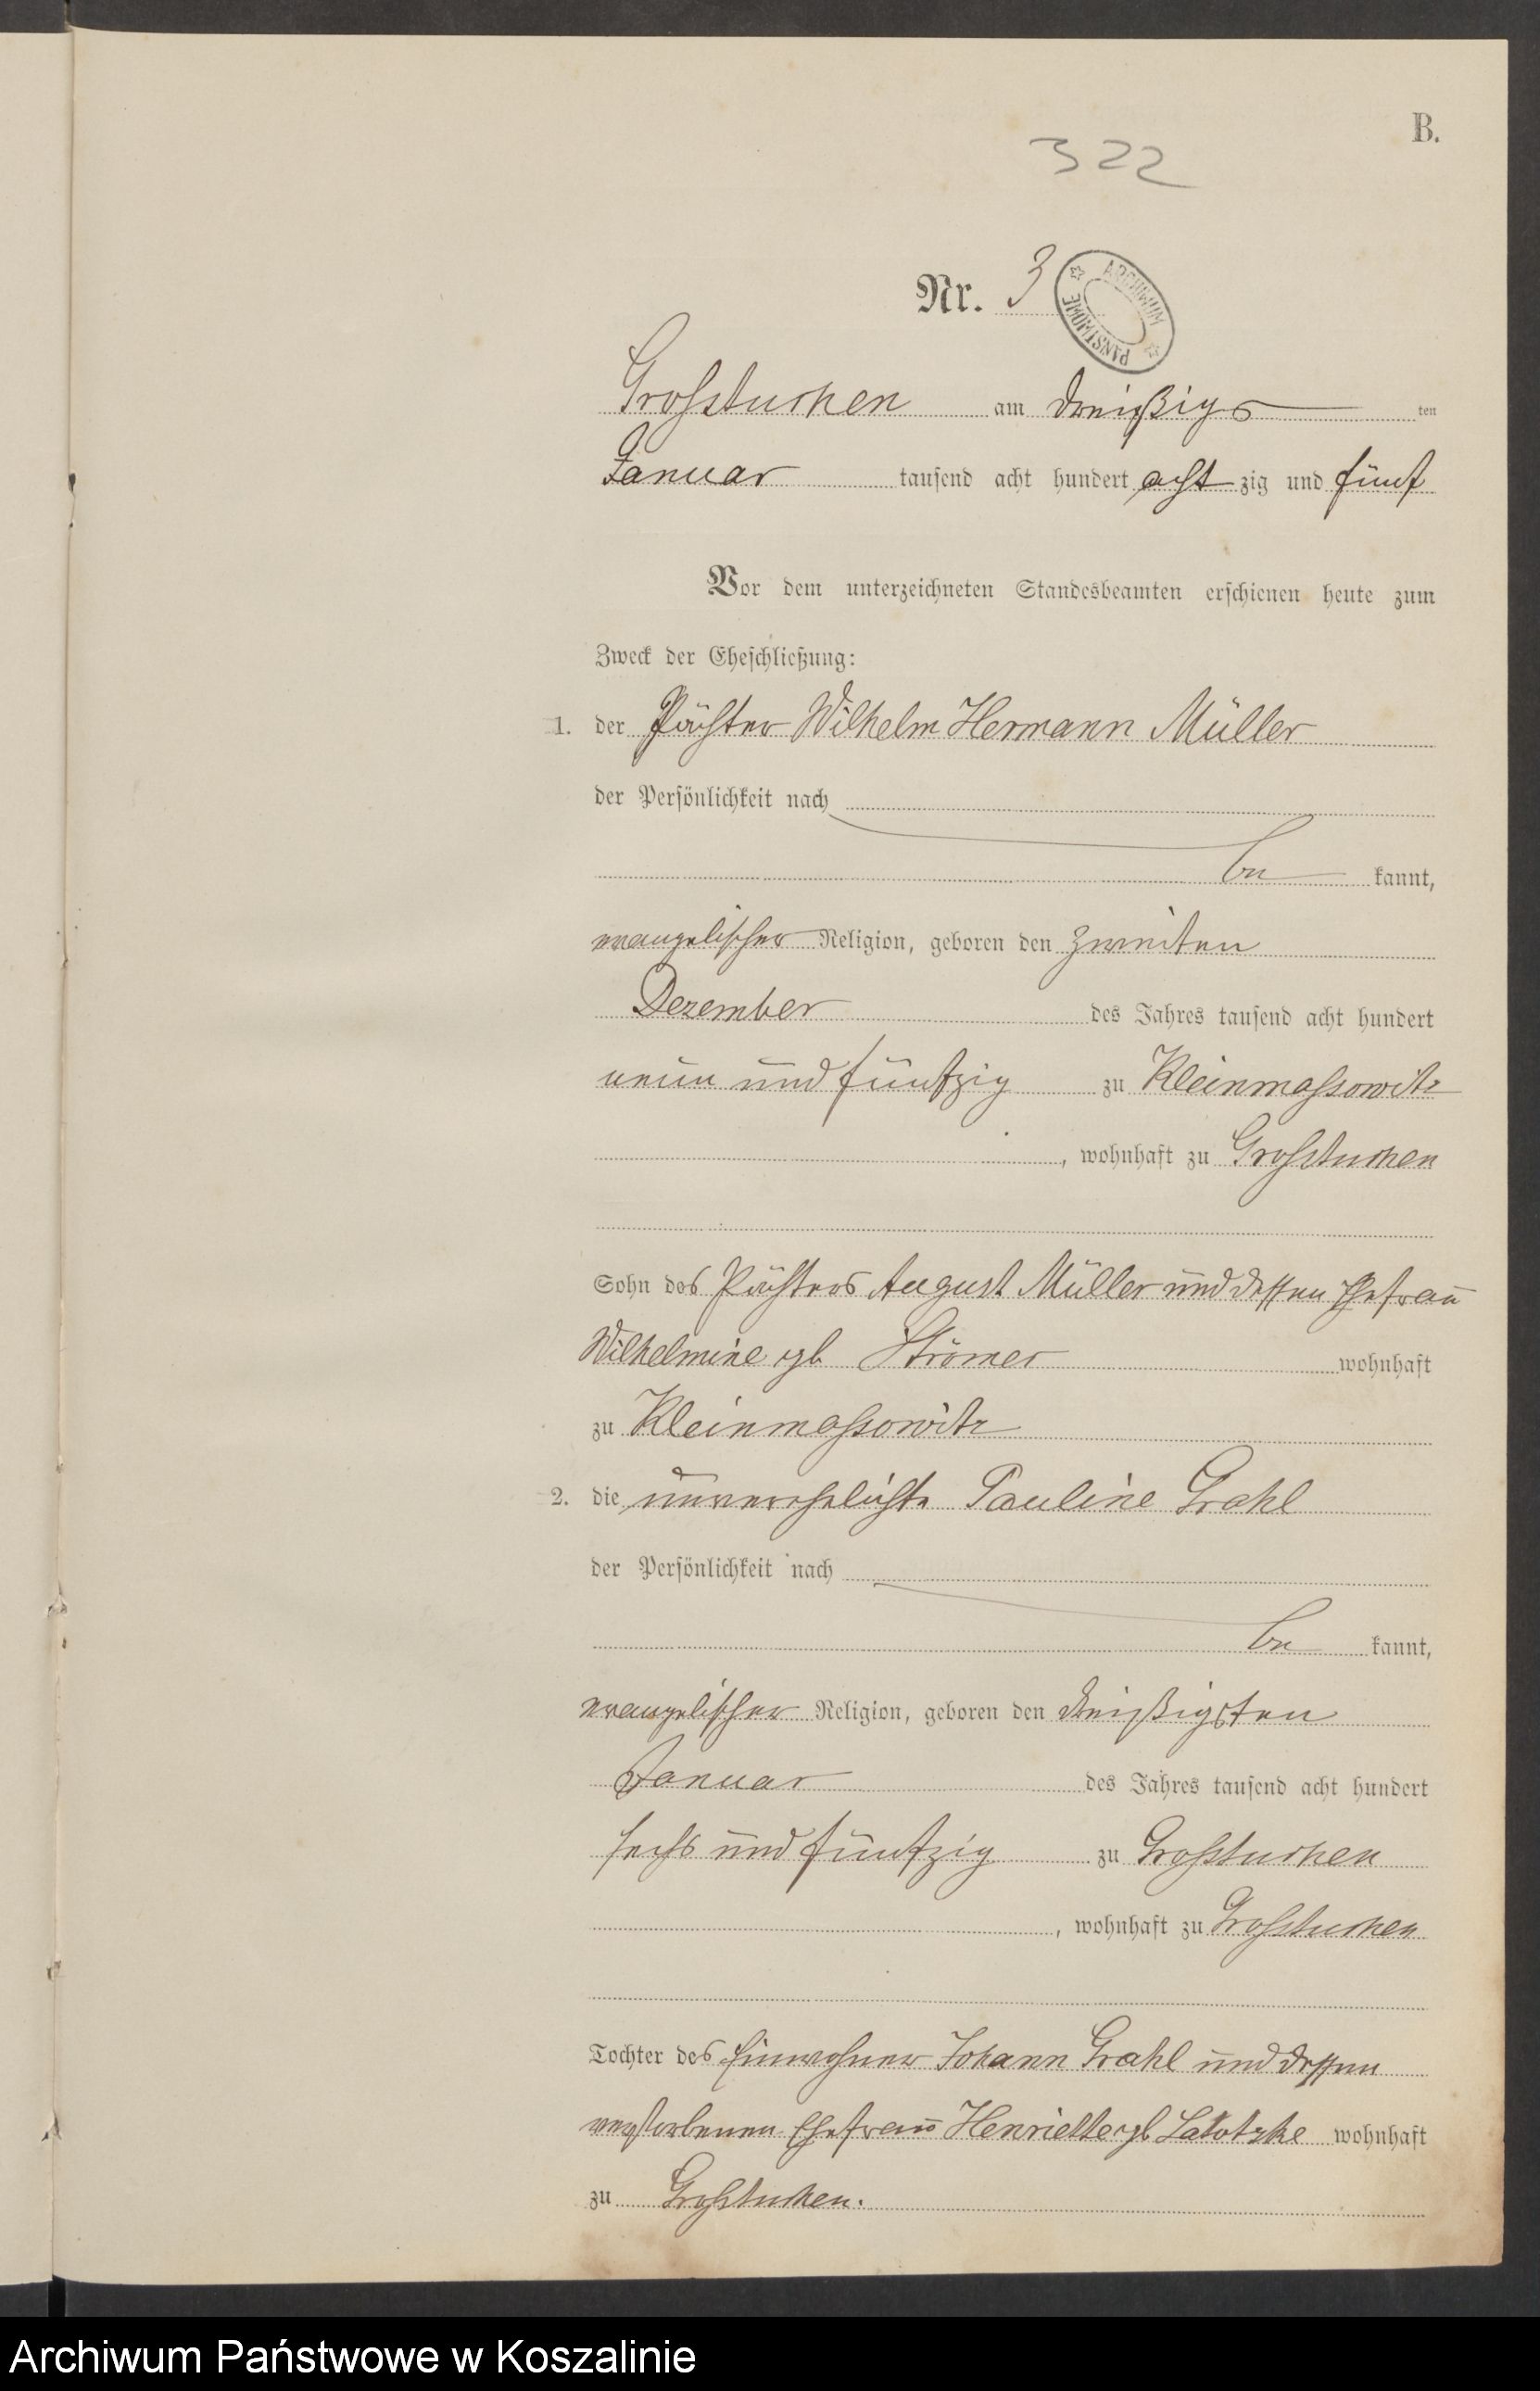 B.
322
Nr. 3
ARCHIWUM PAŃSTWOWE
Großtuchen am dreißigs ten
Januar tausend acht hundert acht zig und fünf
Vor dem unterzeichneten Standesbeamten erschienen heute zum
Zweck der Eheschließung:
1. der Pächter Wilhelm Hermann Müller
der Persönlichkeit nach
be kannt,
evangelischer Religion, geboren den zweiten
Dezember des Jahres tausend acht hundert
neun und fünfzig zu Kleinmassowitz
, wohnhaft zu Großtuchen
Sohn des Pächters August Müller und dessen Ehefrau
Wilhelmine gb Strömer wohnhaft
zu Kleinmassowitz
2. die unverehelichte Pauline Grahl
der Persönlichkeit nach
be kannt,
evangelischer Religion, geboren den dreißigsten
Januar des Jahres tausend acht hundert
sechs und fünfzig zu Großtuchen
, wohnhaft zu Großtuchen
Tochter des Einwohner Johann Grahl und dessen
verstorbenen Ehefrau Henriette gb Latotzke wohnhaft
zu Großtuchen.
Archiwum Państwowe w Koszalinie